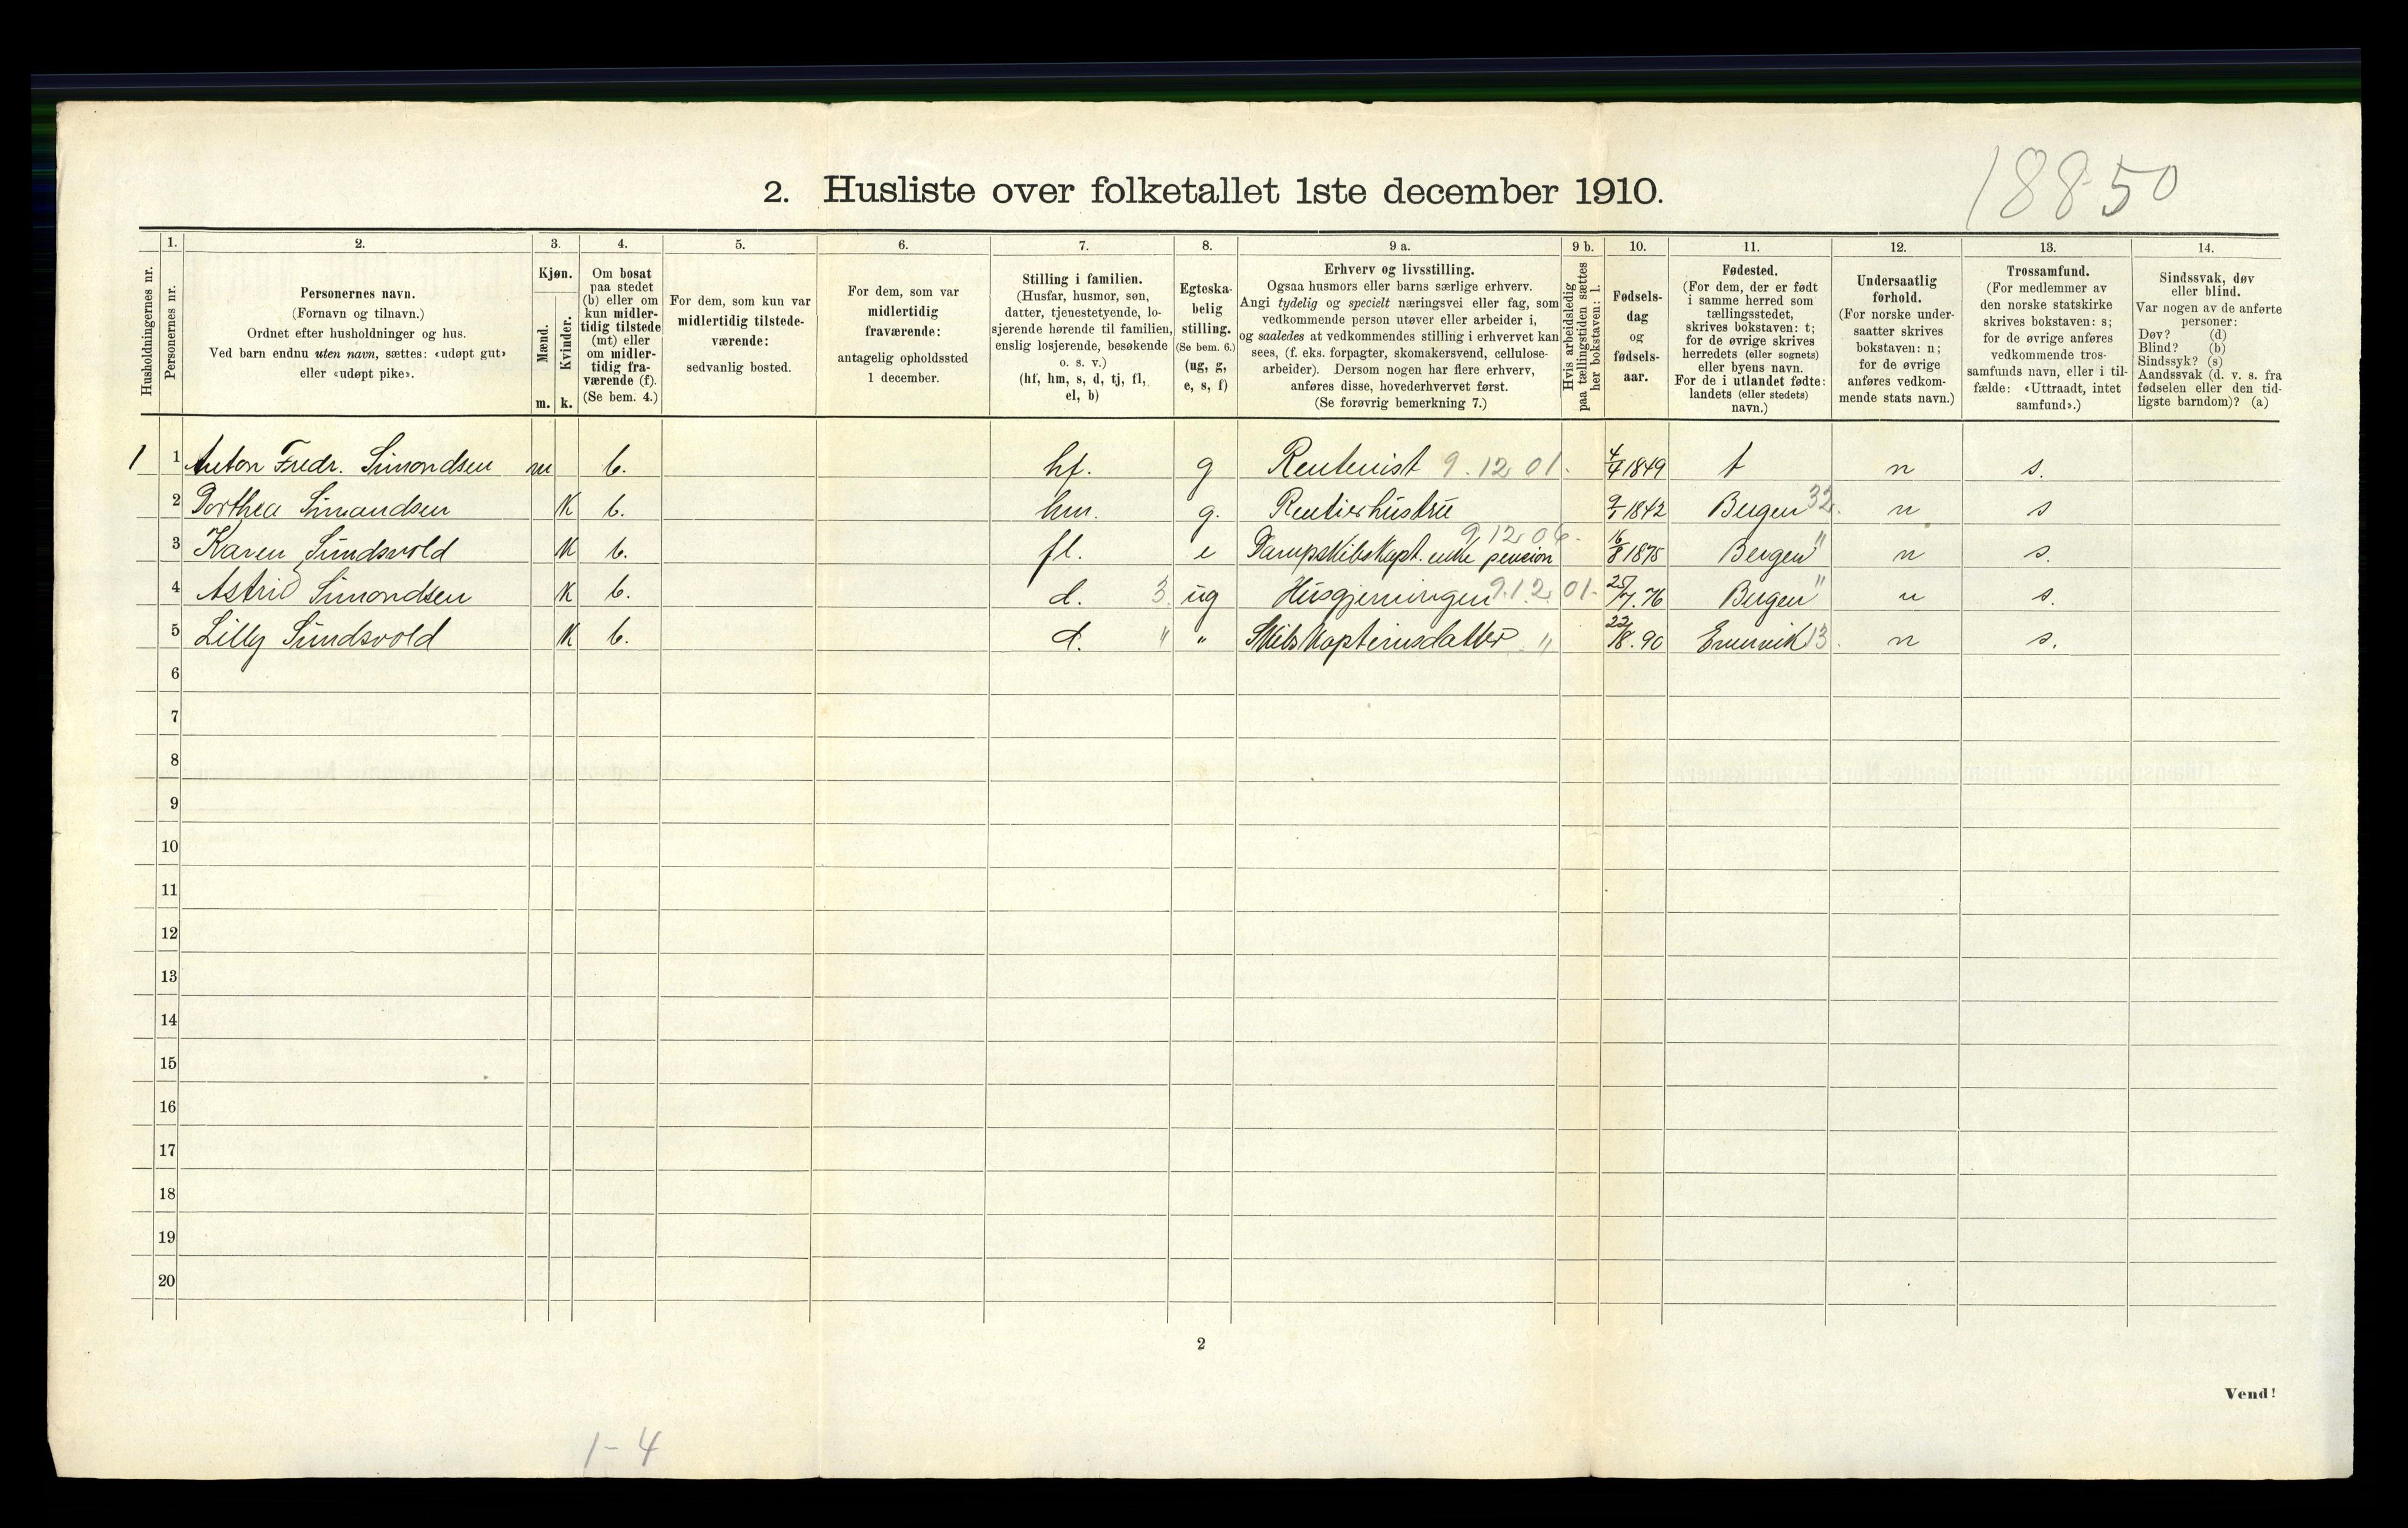 18850
2. Husliste over folketallet 1ste december 1910.
Husholdningernes nr.
1.
Personernes nr.
2.
Personernes navn.
(Fornavn og tilnavn.)
Ordnet efter husholdninger og hus.
Ved barn endnu uten navn, sættes: «udøpt gut»
eller «udøpt pike».
3.
Kjøn.
Mænd.
Kvinder.
m. k.
4.
Om bosat
paa stedet
(b) eller om
kun midler-
tidig tilstede
(mt) eller
om midler-
tidig fra-
værende (f).
(Se bem. 4.)
5.
For dem, som kun var
midlertidig tilstede-
værende:
sedvanlig bosted.
6.
For dem, som var
midlertidig
fraværende:
antagelig opholdssted
1 december.
7.
Stilling i familien.
(Husfar, husmor, søn,
datter, tjenestetyende, lo-
sjerende hørende til familien,
enslig losjerende, besøkende
o. s. v.)
(hf, hm, s, d, tj, fl,
el, b)
8.
Egteska-
belig
stilling.
(Se bem. 6.)
(ug, g,
e, s, f)
9 a.
Erhverv og livsstilling.
Ogsaa husmors eller barns særlige erhverv.
Angi tydelig og specielt næringsvei eller fag, som
vedkommende person utøver eller arbeider i,
og saaledes at vedkommendes stilling i erhvervet kan
sees, (f. eks. forpagter, skomakersvend, cellulose-
arbeider). Dersom nogen har flere erhverv,
anføres disse, hovederhvervet først.
(Se forøvrig bemerkning 7.)
9 b.
Hvis arbeidsledig
paa tællingstiden sættes
her bokstaven: l.
10.
Fødsels-
dag
og
fødsels-
aar.
11.
Fødested.
(For dem, der er født
i samme herred som
tællingsstedet,
skrives bokstaven: t;
for de øvrige skrives
herredets (eller sognets)
eller byens navn.
For de i utlandet fødte:
landets (eller stedets)
navn.)
12.
Undersaatlig
forhold.
(For norske under-
saatter skrives
bokstaven: n;
for de øvrige
anføres vedkom-
mende stats navn.)
13.
Trossamfund.
(For medlemmer av
den norske statskirke
skrives bokstaven: s;
for de øvrige anføres
vedkommende tros-
samfunds navn, eller i til-
fælde: «Uttraadt, intet
samfund».)
14.
Sindssvak, døv
eller blind.
Var nogen av de anførte
personer:
Døv? (d)
Blind? (b)
Sindssyk? (s)
Aandssvak (d. v. s. fra
fødselen eller den tid-
ligste barndom)? (a)
1 1 Anton Fredr. Simondsen m b. hf. g Rentenist 9.12 01. 4/4 1849 t n s.
2 Dorthea Simondsen K b. hm. g. Rentierhustru 1842 Bergen 32. n s
3 Karen Sundsvold K b. fl. e Dampskibskapt. enke pension 16/8 1875 Bergen " n s.
4 Astrid Simondsen K b. d. 3. ug Husgjerningen 9.12 01. 25/7. 76 Bergen " n s.
5 Lilly Sundsvold K b. d. " " Skibskapteinsdatter " 90 Evenvik 13. n s.
6
7
8
9
10
11
12
13
14
15
16
17
18
19
20
2
Vend!
1-4